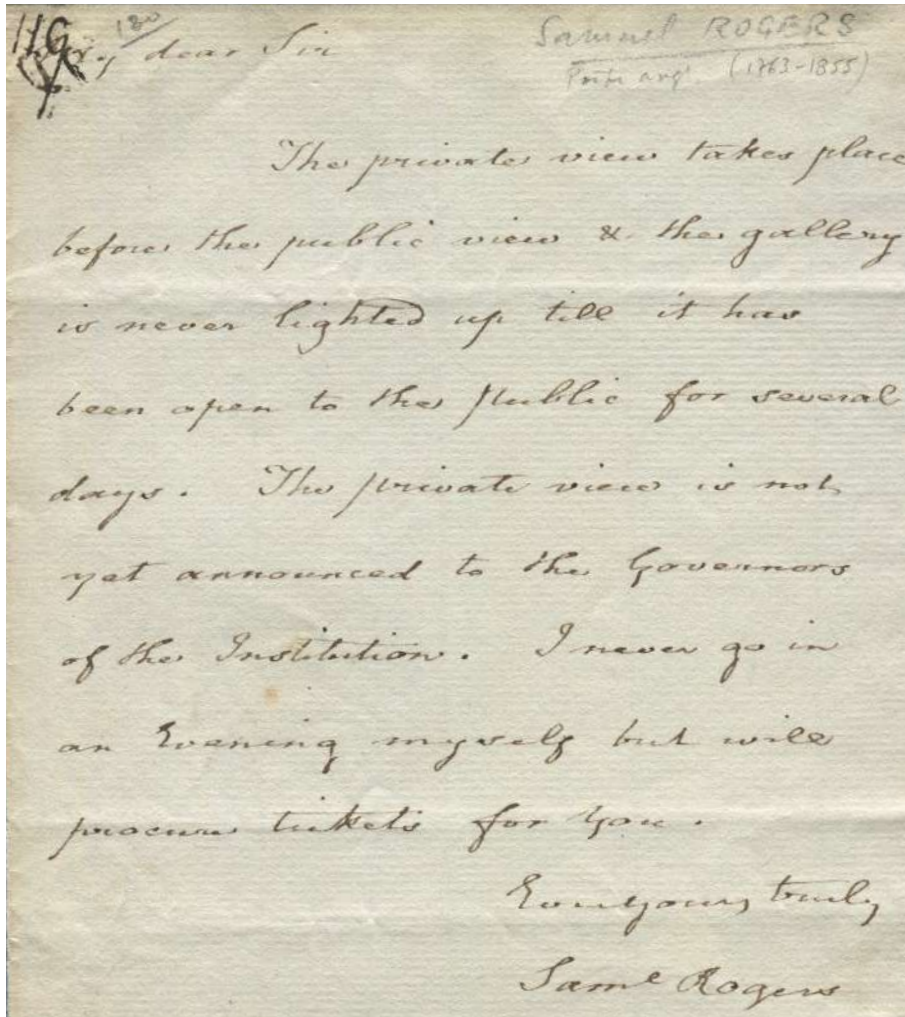 119
180
Samuel ROGERS
(1763-1855)
My dear Sir
The private view takes place
before the public view & the gallery
is never lighted up till it has
been open to the public for several
days. The private view is not
yet announced to the Governors
of the Institution. I never go in
an Evening myself but will
procure tickets for you.
Ever yours truly
Saml Rogers